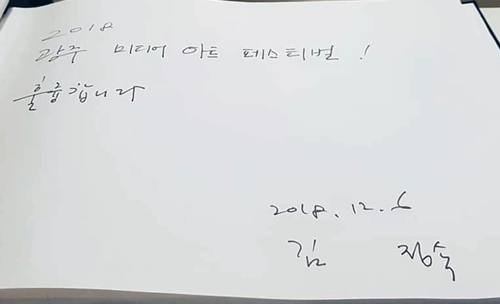 2018
광주 미디어 아트 페스티벌!
훌륭합니다
2018. 12. 6
김 정숙